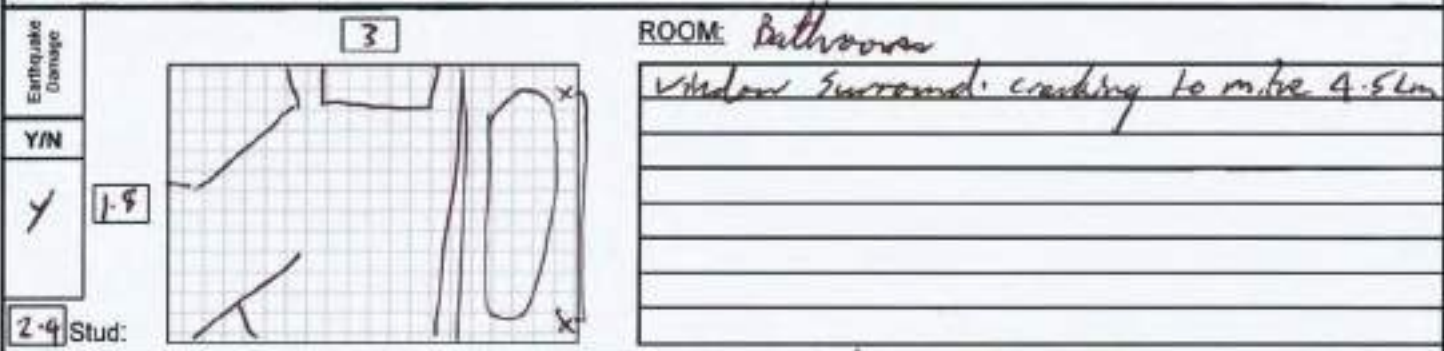 Earthquake Damage
Y/N
Y
3
1.8
2.9 Stud:
X
X
ROOM: Bathroom
Window Surround. cracking to mitre 4.5Lm